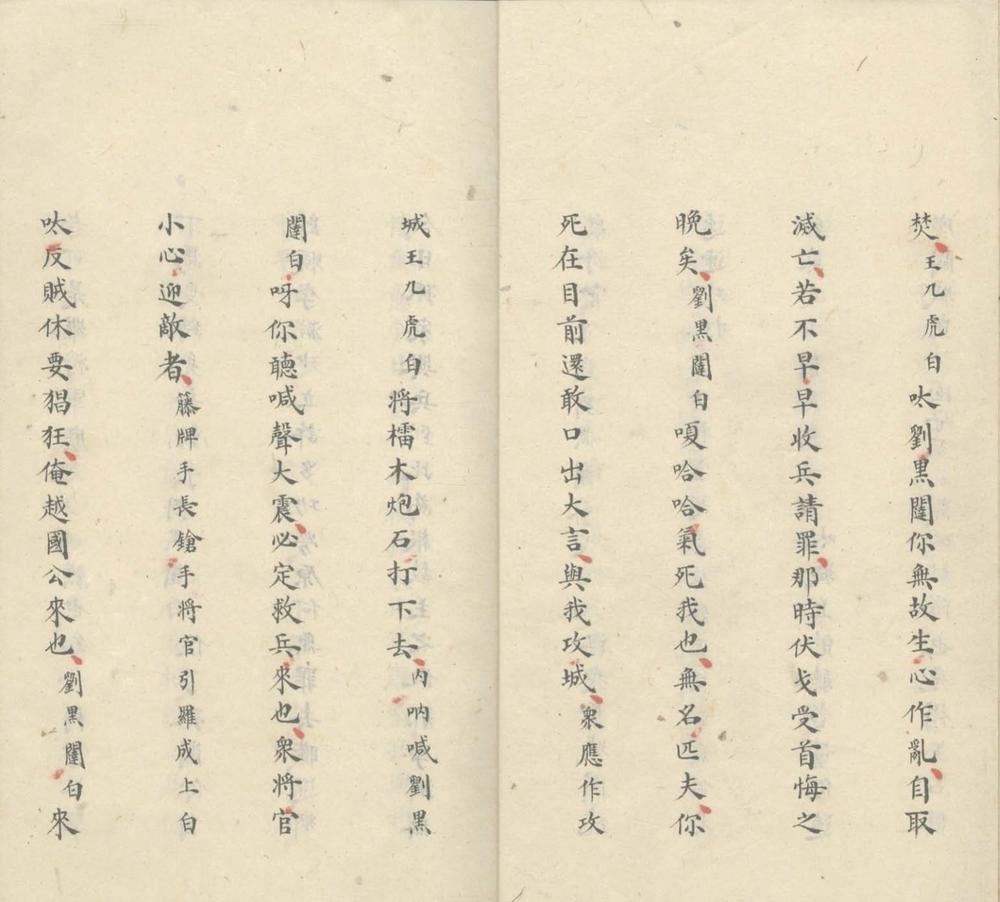 焚王兀虎白呔劉黑闥你無故生心作亂自取
滅亡若不早早收兵請罪那時伏戈受首悔之
晚矣劉黑闥白嗄哈哈氣死我也無名匹夫你
死在目前還敢口出大言與我攻城衆應作攻
城王兀虎白將檑木炮石打下去內吶喊劉黑
闥白呀你聽喊聲大震必定救兵來也衆將官
小心迎敵者籐牌手長鎗手將官引羅成上白
呔反賊休要猖狂俺越國公來也劉黑闥白來